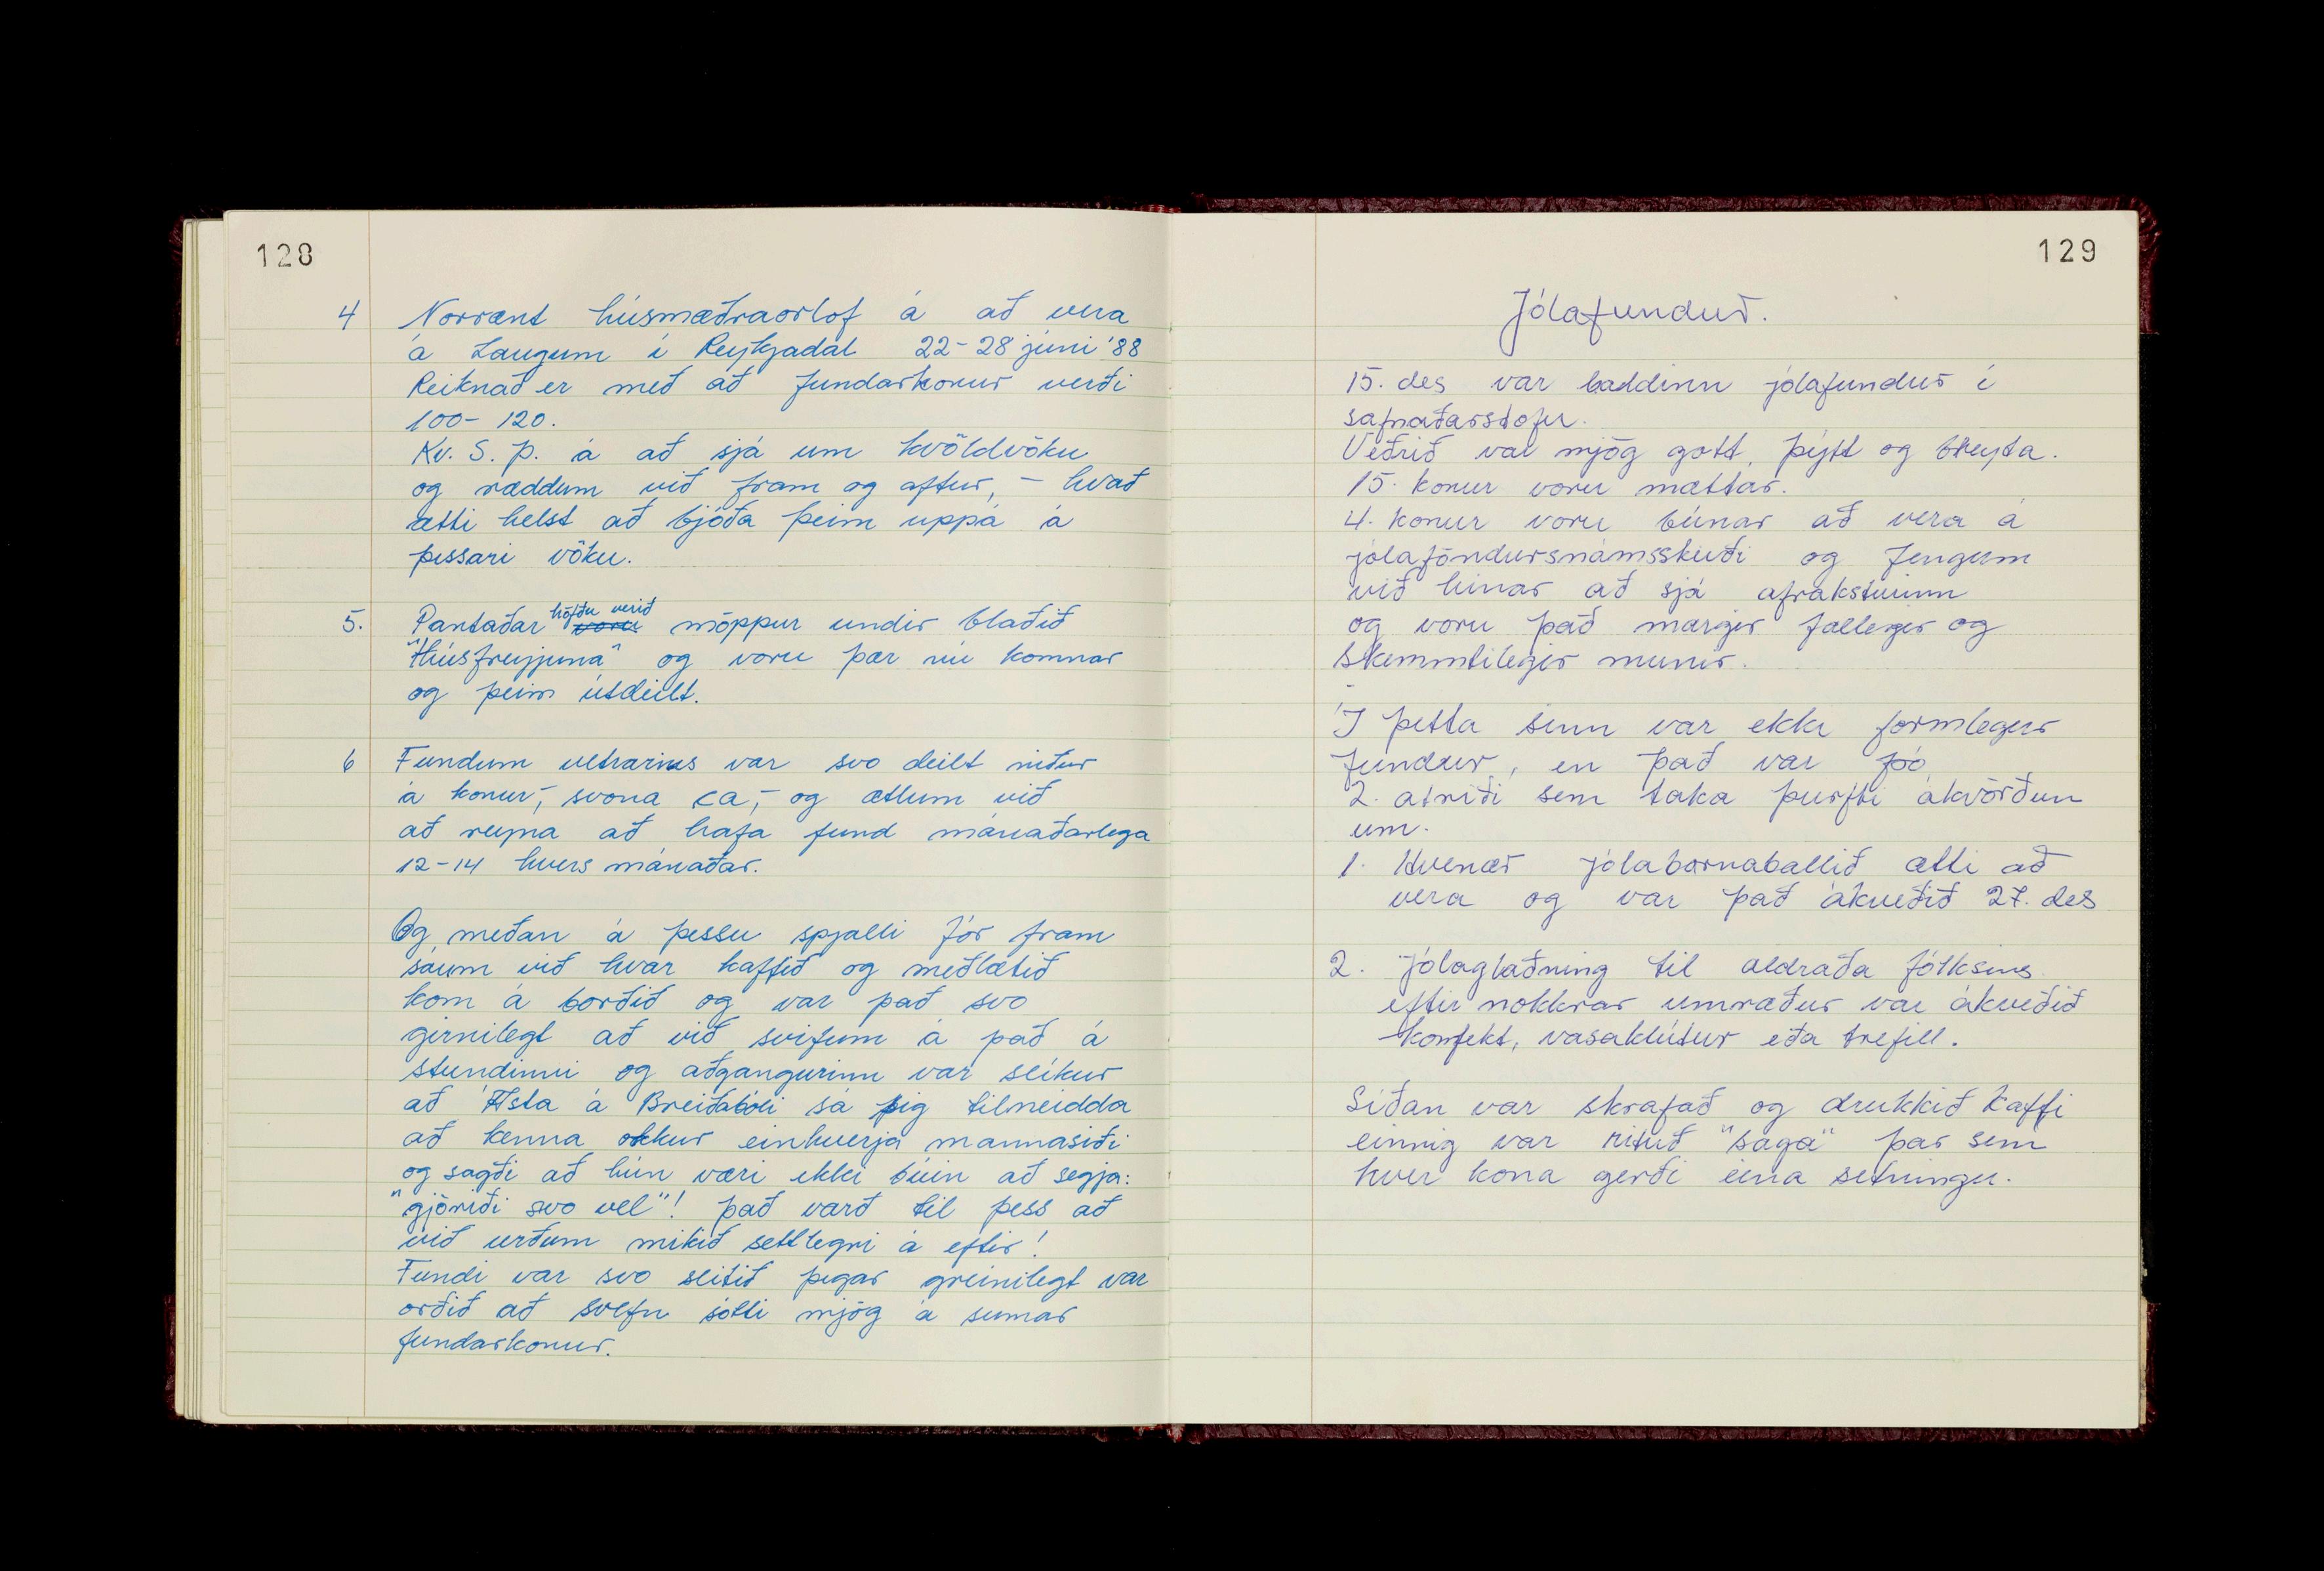 128
4 Norrænt húsmæðraorlof á að vera
á Laugum í Reykjadal 22-28 júni '88
Reiknað er með að fundarkonur verði
100-120.
Kv. S. Þ. á að sjá um kvöldvöku
og ræddum við fram og aftur, - hvað
ætti helst að bjóða þeim uppá á
þessari vöku.
5. Pantaðar höfðu verið voru möppur undir blaðið
"Húsfreyjuna" og voru þær nú komnar
og þeim útdeilt.
6 Fundum vetrarins var svo deilt niður
á konur, svona ca, - og ætlum við
að reyna að hafa fund mánaðarlega
12-14 hvers mánaðar.
Og meðan á þessu spjalli fór fram
sáum við hvar kaffið og meðlætið
kom á borðið og var það svo
girnilegt að við svifum á það á
stundinni og aðgangurinn var slíkur
að Ásta á Breiðabóli sá sig tilneidda
að kenna okkur einhverja mannasiði
og sagði að hún væri ekki búin að segja:
"gjöriði svo vel"! það varð til þess að
við urðum mikið settlegri á eftir!
Fundi var svo slitið þegar greinilegt var
orðið að svefn sótti mjög á sumar
fundarkonur.
129
Jólafundur.
15. des var haldinn jólafundur í
safnaðarstofu.
Veðrið var mjög gott, þýtt og bleyta.
15. konur voru mættar.
4. konur voru búnar að vera á
jólaföndursnámsskeiði og fengum
við hinar að sjá afraksturinn
og voru það margir fallegir og
skemmtilegir munir.
Í þetta sinn var ekki formlegur
fundur, en það var þó
2. atriði sem taka þurfti ákvörðun
um.
1. Hvenær jólabarnaballið ætti að
vera og var það ákveðið 27. des
2. Jólaglaðning til aldraða fólksins
eftir nokkrar umræður var ákveðið
konfekt, vasaklútur eða trefill.
Síðan var skrafað og drukkið kaffi
einnig var rituð "saga" þar sem
hver kona gerði eina setningu.